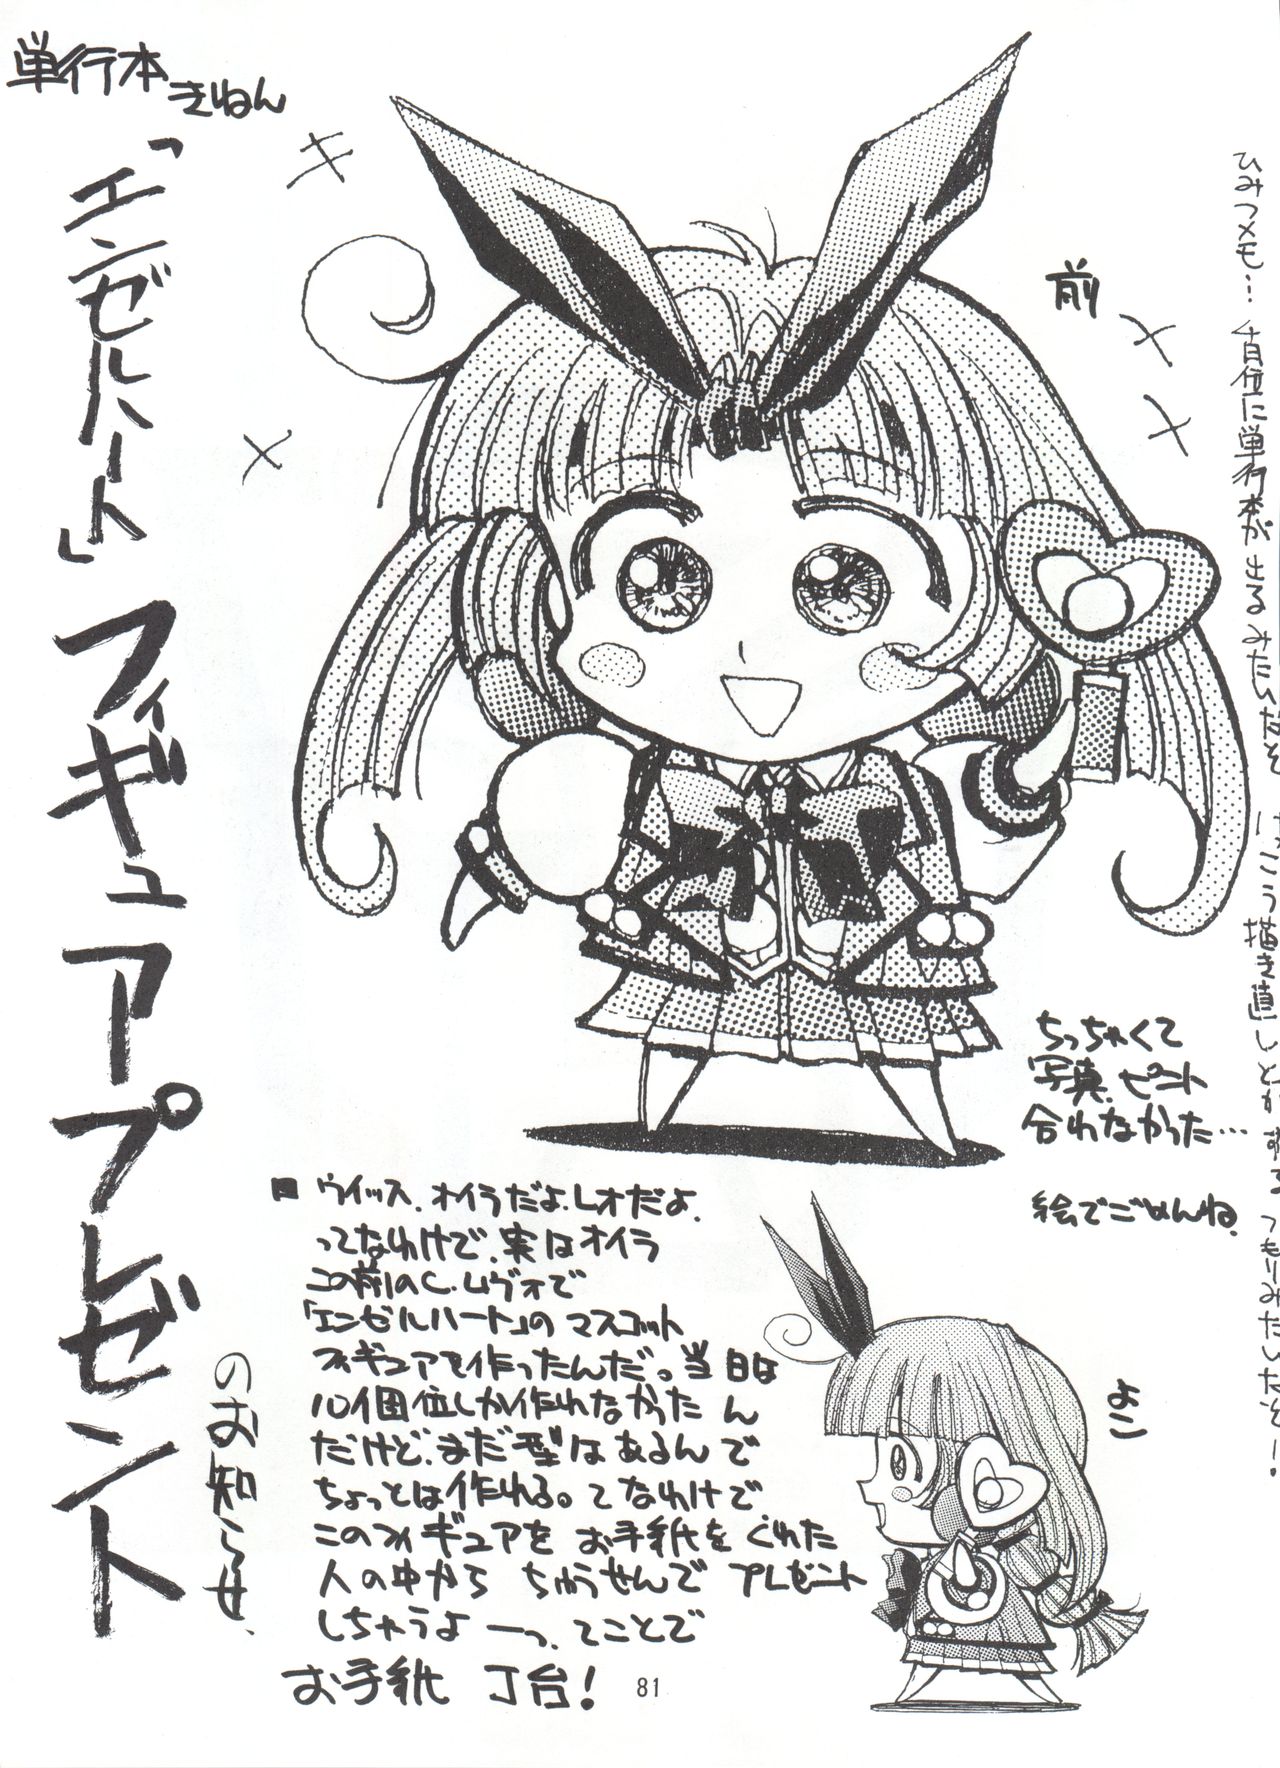 単行本
きねん
「エンゼルハート」フィギュアプレゼント
のお知らせ、
前
ちっちゃくて
写真、ピント
合わなかった…
絵でごめんね。
よこ
ウイッス、オイラだよ、レオだよ、
ってなわけで、実はオイラ
この前のC.レヴォで
「エンゼルハート」のマスコット
フィギュアを作ったんだ。当日は
10個位しか作れなかったん
だけど、まだ型はあるんで
ちょっとは作れる。てなわけで
このフィギュアをお手紙をくれた
人の中から ちゅうせんで プレゼント
しちゃうよーっ、てことで
お手紙 丁台!
81
ひみつメモ… 月位に単行本が出るみたいだぞ けっこう描き直しとかする つもりみたいだぞー。